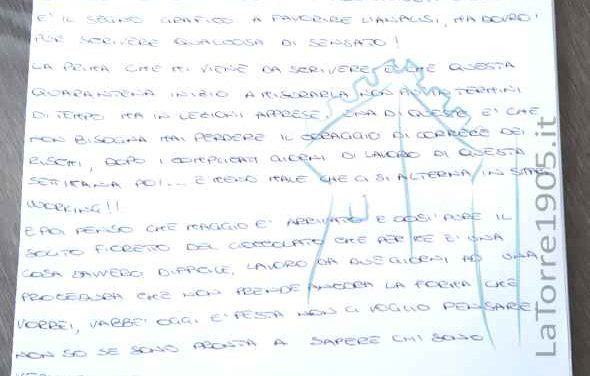 E' IL SEGNO GRAFICO A FAVORIRE L'ANALISI, MA DOVRO'
PUR SCRIVERE QUALCOSA DI SENSATO!
LA PRIMA CHE MI VIENE DA SCRIVERE E' CHE QUESTA
QUARANTENA INIZIO A MISURARLA NON PIÙ IN TERMINI
DI TEMPO MA IN LEZIONI APPRESE. UNA DI QUESTE E' CHE
NON BISOGNA MAI PERDERE IL CORAGGIO DI CORRERE DEI
RISCHI, DOPO I COMPLICATI GIORNI DI LAVORO DI QUESTA
SETTIMANA POI... E MENO MALE CHE CI SI ALTERNA IN SMART
WORKING!!
E POI PENSO CHE MAGGIO E' ARRIVATO E COSI' PURE IL
SOLITO FIORETTO DEL CIOCCOLATO CHE PER ME E' UNA
COSA DAVVERO DIFFICILE, LAVORO DA DUE GIORNI AD UNA
PROCEDURA CHE NON PRENDE ANCORA LA FORMA CHE
VORREI, VABBE' OGGI E' FESTA NON CI VOGLIO PENSARE!
NON SO SE SONO PRONTA A SAPERE CHI SONO
LaTorre1905.it